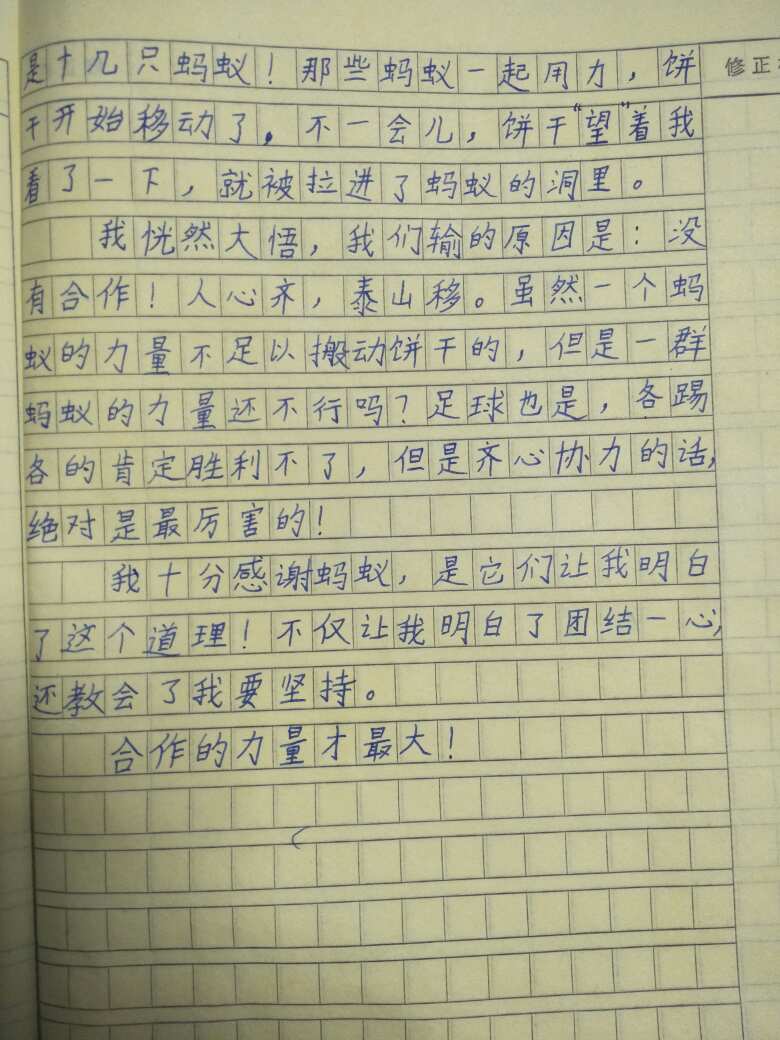 是十几只蚂蚁！那些蚂蚁一起用力，饼
干开始移动了。不一会儿，饼干“望”着我
看了一下，就被拉进了蚂蚁的洞里。
我恍然大悟，我们输的原因是：没
有合作！人心齐，泰山移。虽然一个蚂
蚁的力量不足以搬动饼干的，但是一群
蚂蚁的力量还不行吗？足球也是，各踢
各的肯定胜利不了，但是齐心协力的话，
绝对是最厉害的！
我十分感谢蚂蚁，是它们让我明白
了这个道理！不仅让我明白了团结一心，
还教会了我要坚持。
合作的力量才最大！
修正